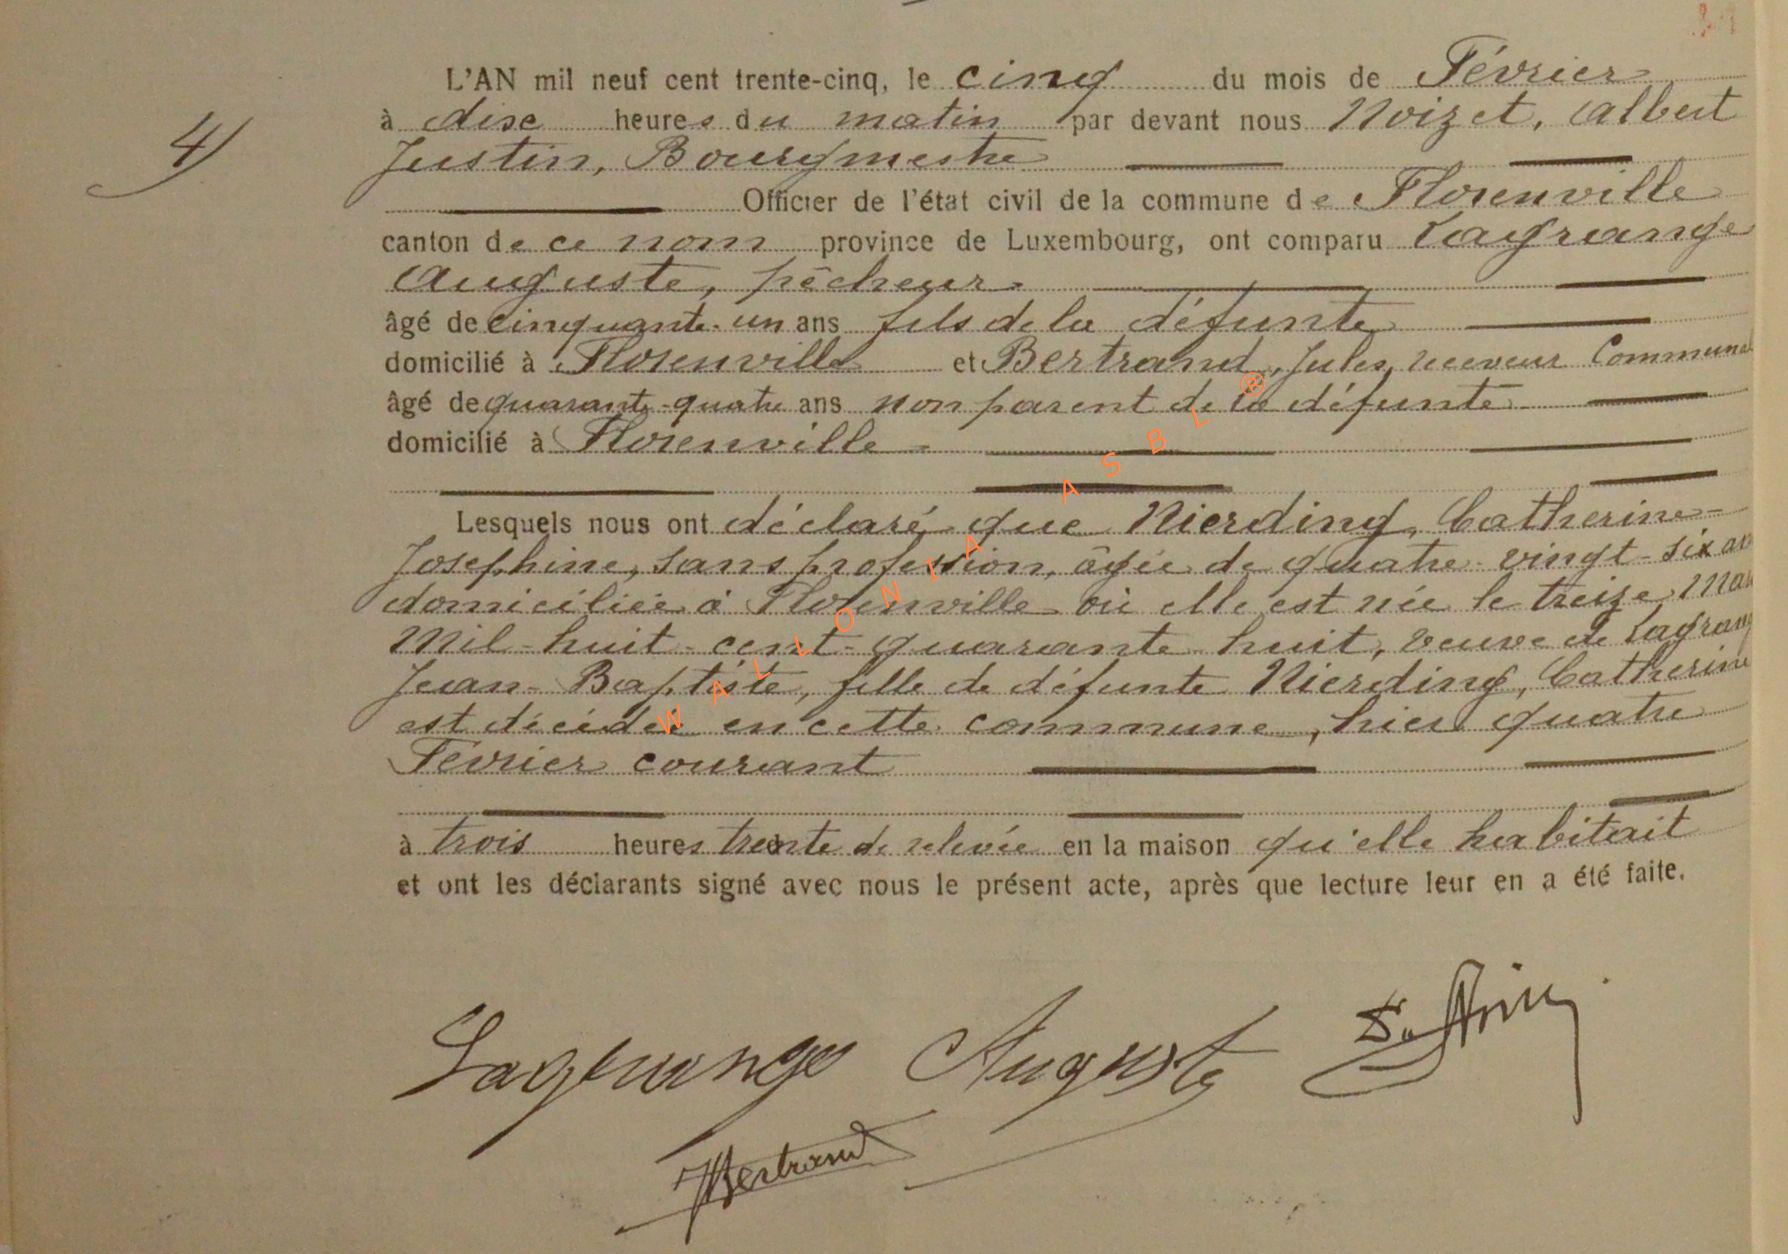 L'AN mil neuf cent trente-cinq, le cinq du mois de Février
à dixe heures du matin par devant nous Noizet, Albert
4)
Justin, Bourgmestre
Officier de l'état civil de la commune de Florenville
canton de ce nom province de Luxembourg, ont comparu Lagrange
Auguste, pêcheur
âgé de cinquante-un ans fils de la défunte
domicilié à Florenville et Bertrand, Jules, receveur Communal
âgé de quarante-quatre ans non parent de la défunte
domicilié à Florenville
Lesquels nous ont déclaré que Nierding, Catherine-
Josephine, sans profession, âgée de quatre-vingt-six an
domiciliée à Florenville où elle est née le treize Mar
Mil-huit-cent-quarante huit, veuve de Lagrang
Jean-Baptiste, fille de défunte Nierding, Catherine
est décédée en cette commune, hier quatre
Février courant
à trois heures trente de relevée en la maison qu'elle habitait
et ont les déclarants signé avec nous le présent acte, après que lecture leur en a été faite.
Lagrange Auguste
JBertrand
WALLONIA ASBL ®